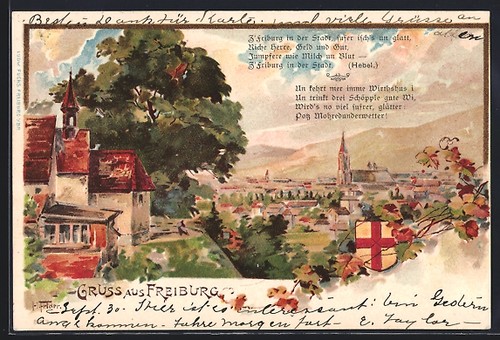 Besten Dank für Karte. und viele Grüsse an
allen
Z'Friburg in der Stadt, sufer isch's un glatt,
Riche Herre, Geld und Gut,
Jumpfere wie Milch un Blut —
Z'Friburg in der Stadt. (Hebel.)
Un kehrt mer imme Wirthshus i
Un trinkt drei Schöpple gute Wi,
Wird's no viel sufrer, glätter:
Potz Mohredunderwetter!
GRUSS AUS FREIBURG.
Sept. 30. Hier ist es interessant: bin Gestern
Angekommen. Fahre morgen fort — E. Taylor —